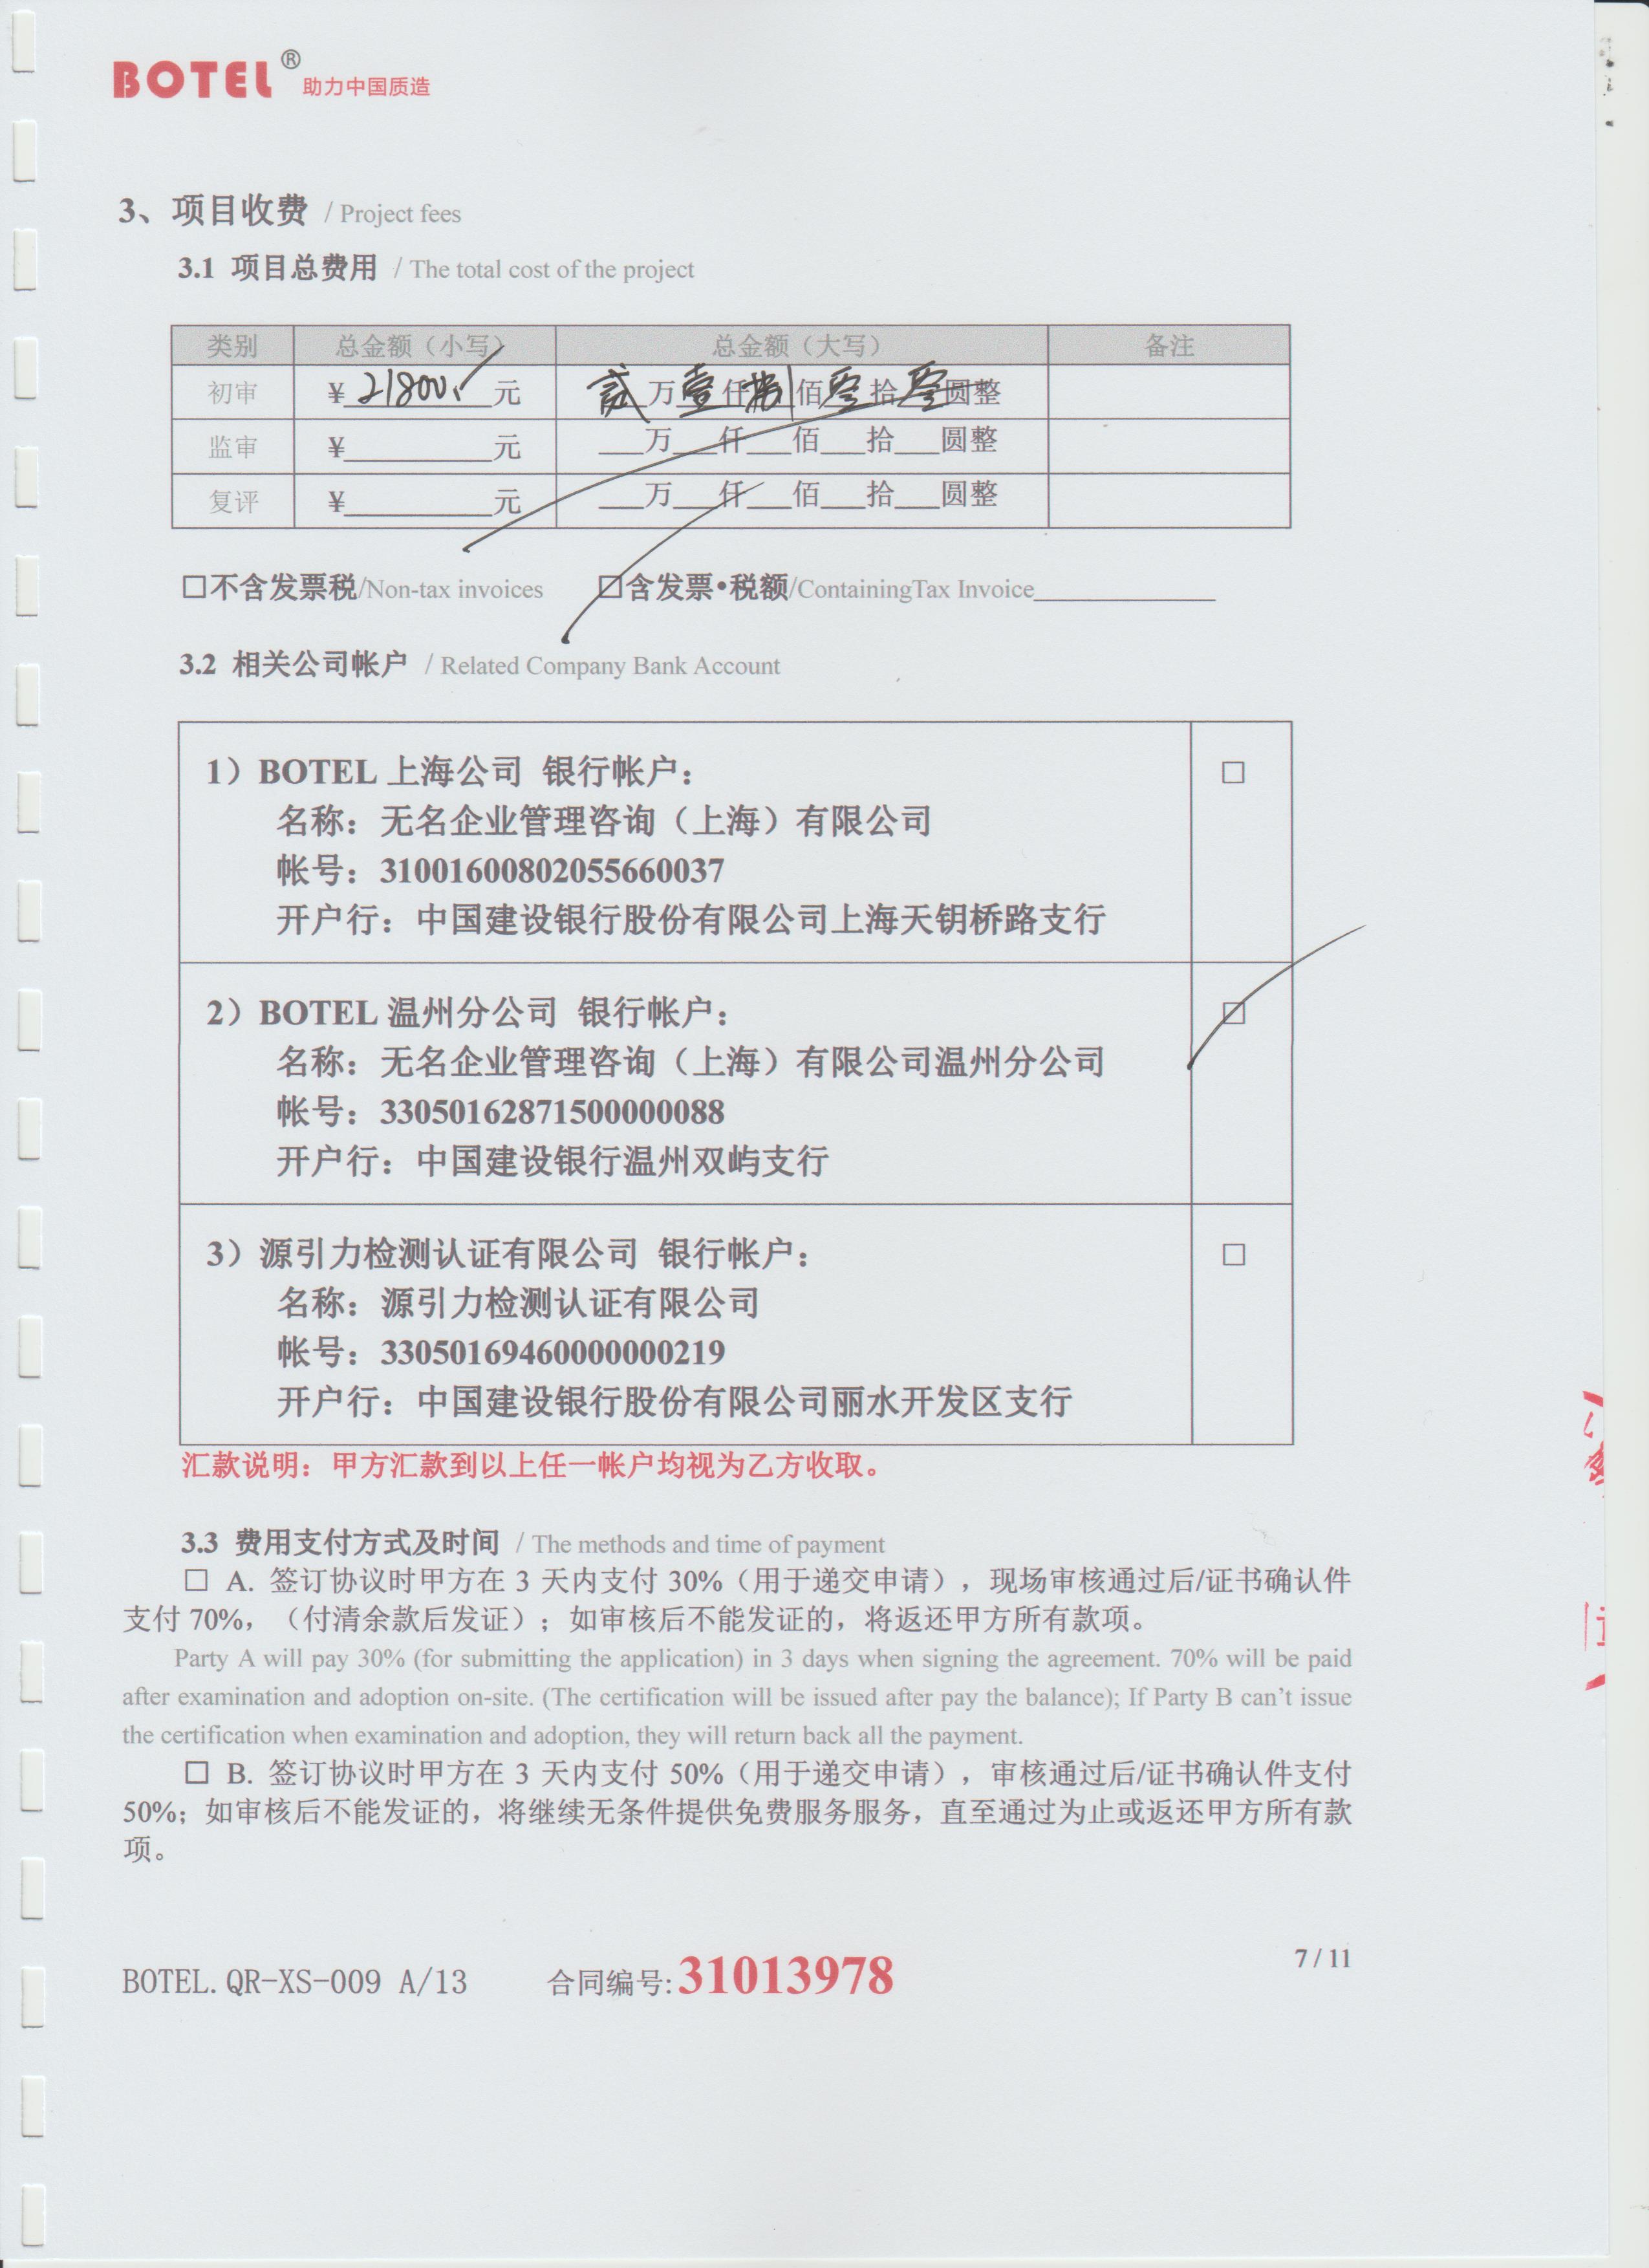 BOTEL® 助力中国质造
3、项目收费 / Project fees
3.1 项目总费用 / The total cost of the project
类别 总金额（小写） 总金额（大写） 备注
初审 ¥21800.元 贰万壹仟捌佰零拾零圆整
监审 ¥__________元 ___万___仟___佰___拾___圆整
复评 ¥__________元 ___万___仟___佰___拾___圆整
☐不含发票税/Non-tax invoices ☑含发票•税额/ContainingTax Invoice____________
3.2 相关公司帐户 / Related Company Bank Account
1）BOTEL 上海公司 银行帐户： ☐
名称：无名企业管理咨询（上海）有限公司
帐号：31001600802055660037
开户行：中国建设银行股份有限公司上海天钥桥路支行
2）BOTEL 温州分公司 银行帐户： ☑
名称：无名企业管理咨询（上海）有限公司温州分公司
帐号：33050162871500000088
开户行：中国建设银行温州双屿支行
3）源引力检测认证有限公司 银行帐户： ☐
名称：源引力检测认证有限公司
帐号：33050169460000000219
开户行：中国建设银行股份有限公司丽水开发区支行
汇款说明：甲方汇款到以上任一帐户均视为乙方收取。
3.3 费用支付方式及时间 / The methods and time of payment
☐ A. 签订协议时甲方在 3 天内支付 30%（用于递交申请），现场审核通过后/证书确认件
支付 70%，（付清余款后发证）；如审核后不能发证的，将返还甲方所有款项。
Party A will pay 30% (for submitting the application) in 3 days when signing the agreement. 70% will be paid
after examination and adoption on-site. (The certification will be issued after pay the balance); If Party B can’t issue
the certification when examination and adoption, they will return back all the payment.
☐ B. 签订协议时甲方在 3 天内支付 50%（用于递交申请），审核通过后/证书确认件支付
50%；如审核后不能发证的，将继续无条件提供免费服务服务，直至通过为止或返还甲方所有款
项。
BOTEL.QR-XS-009 A/13 合同编号:31013978 7 / 11